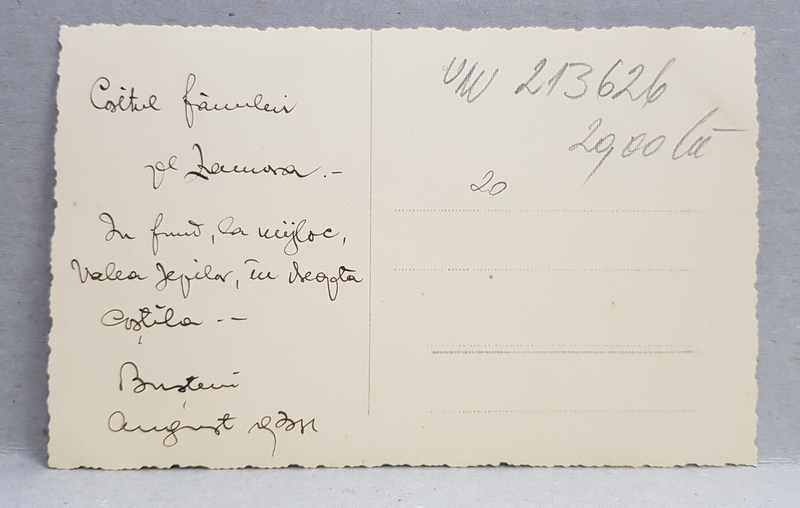 Cositul fânului
pe Zamora.-
In fund, la mijloc,
Valea Jepilor, în dreapta
Coștila --
Bușteni
August 193
213626
29,00 lei
20